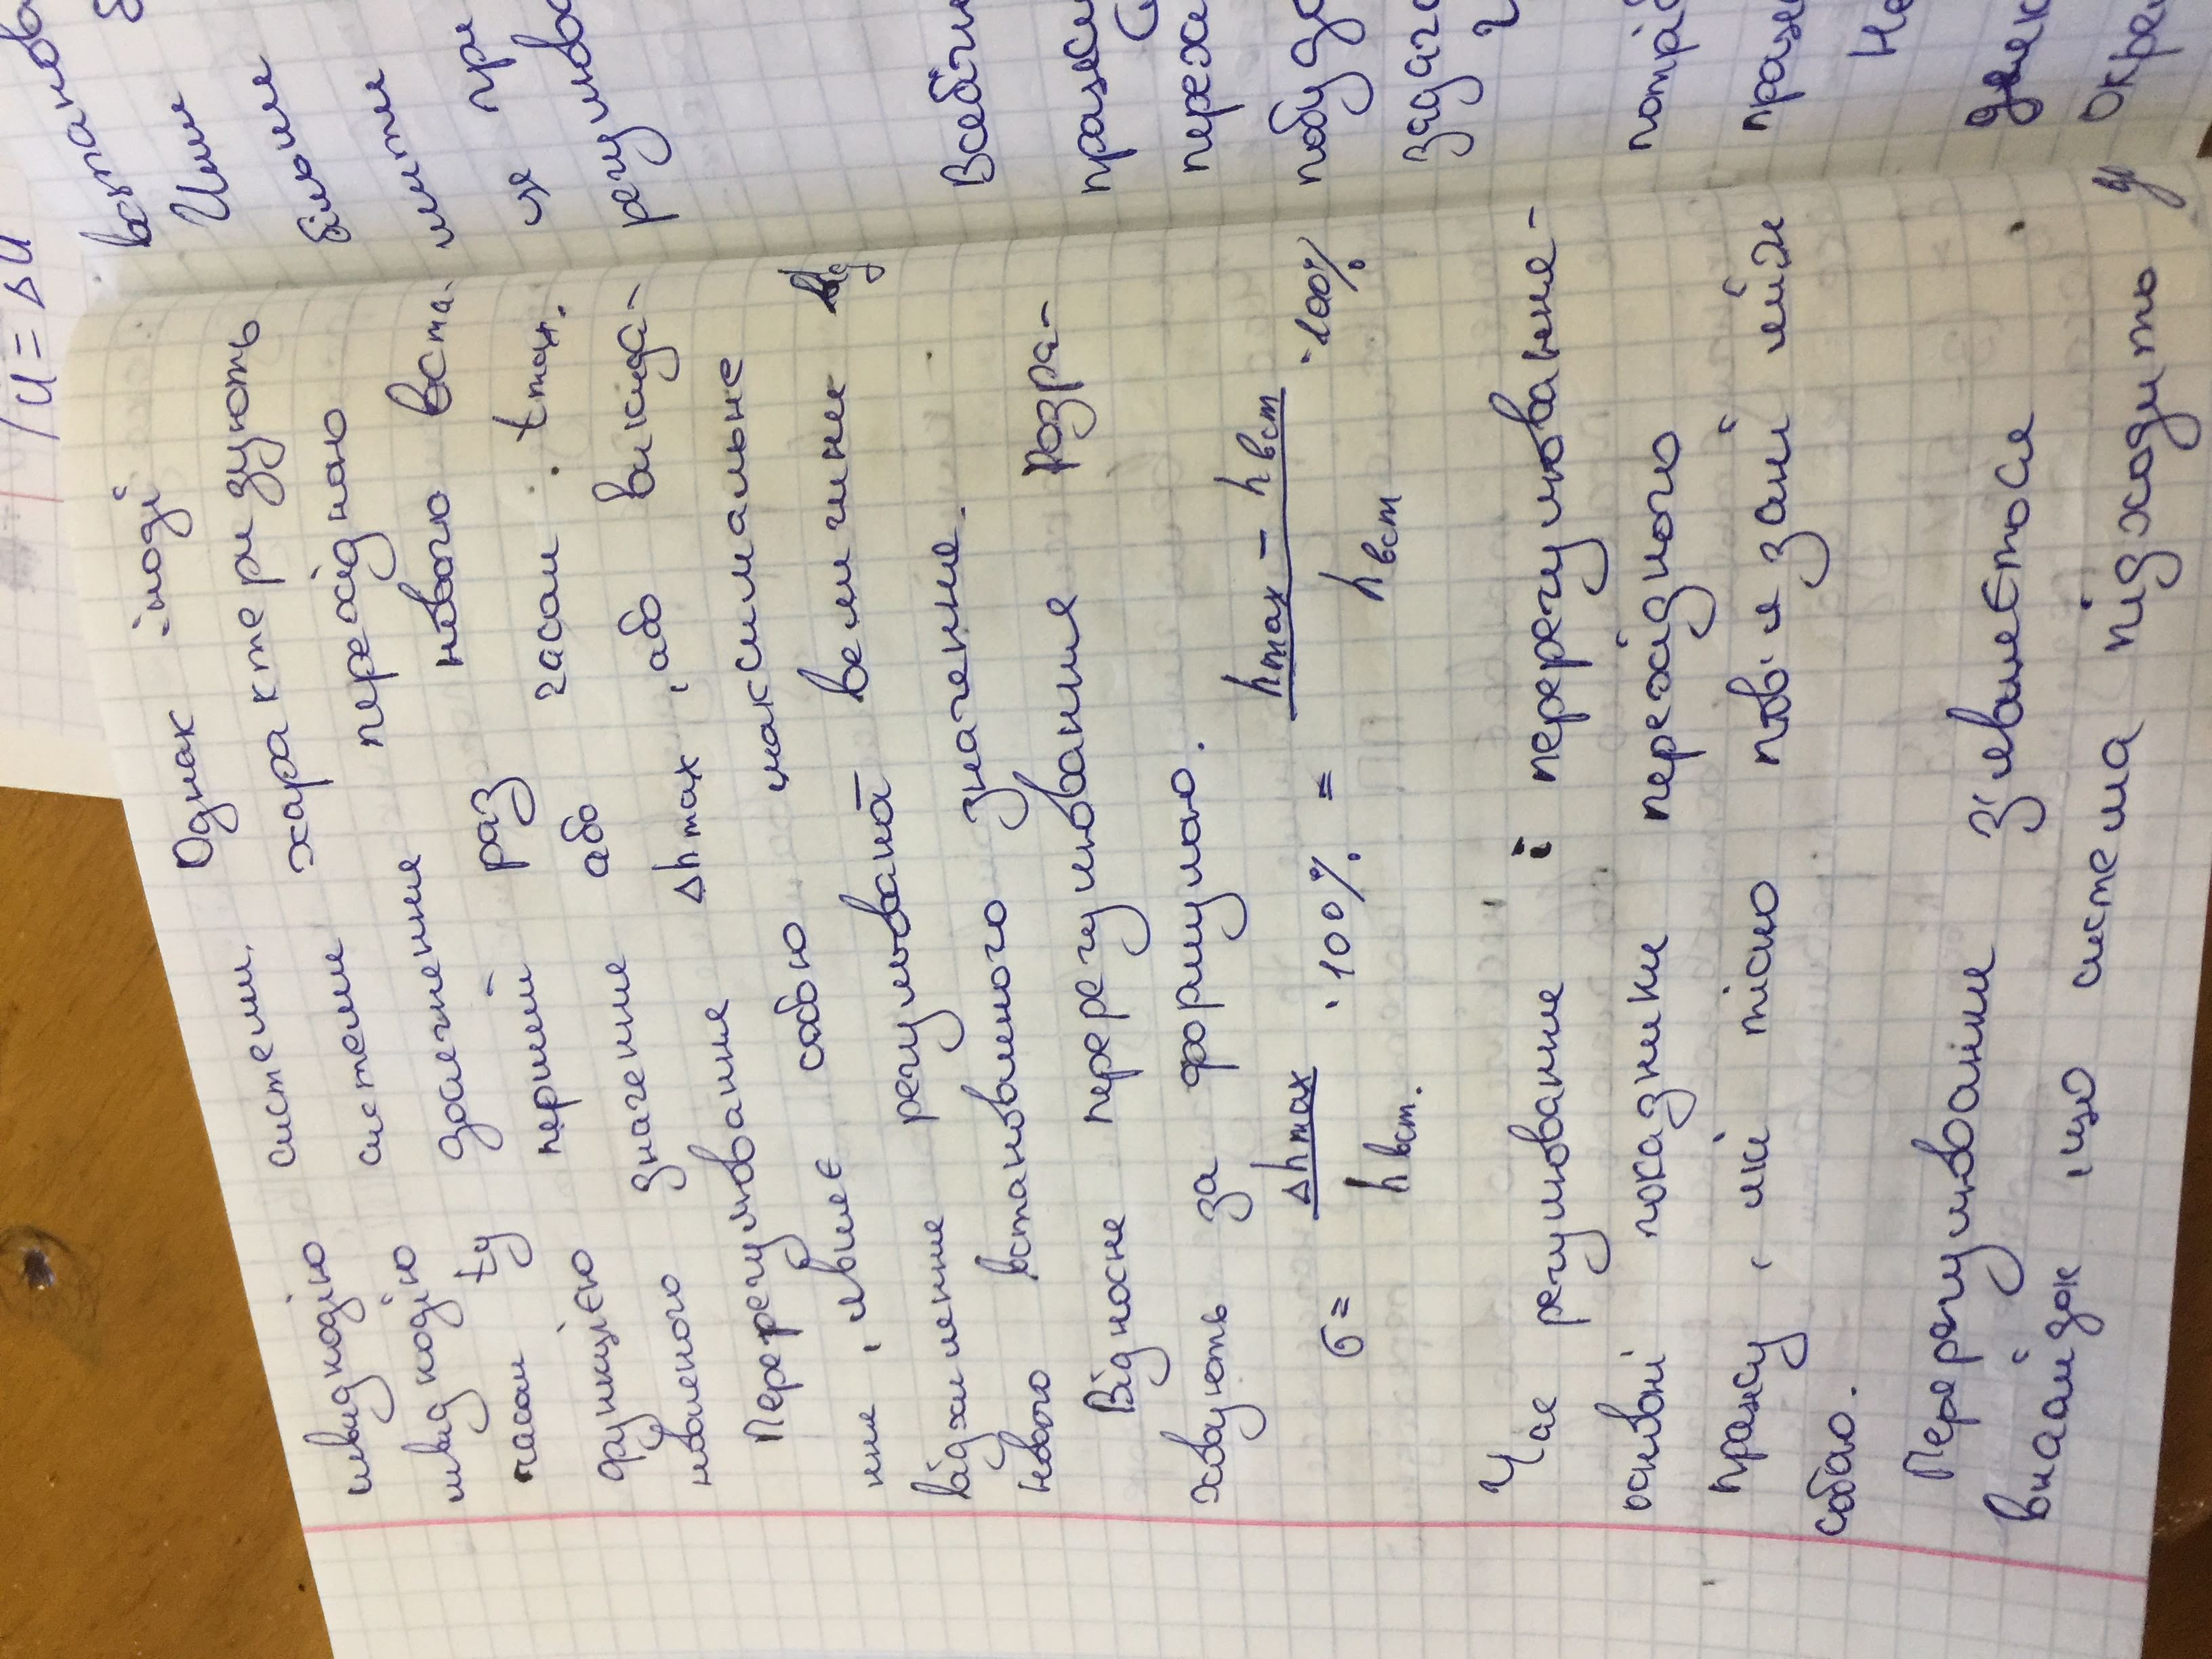 /U = ΔU
швидкодію системи. Однак іноді
швидкодію системи характеризують
часом ty досягнення перехідною
функцією перший раз нового вста-
новленого значення або часом tmax.
Перерегулювання Δhmax, або викида-
ння, являє собою максимальне
відхилення регульованої величини від
нового встановленого значення.
Відносне перерегулювання розра-
ховують за формулою.
σ = Δhmax / hвст. · 100% = hmax - hвст / hвст · 100%
Час регулювання і перерегулювання -
основні показники перехідного
процесу, які тісно пов'язані між
собою.
Перерегулювання з'являється
внаслідок, що система підходить д
встанов
Чим б
більши
шити
це при
регулюва
Всебічн
процеси
перехі
побудо
задачо
потріб
проце
Не
деяк
Окре